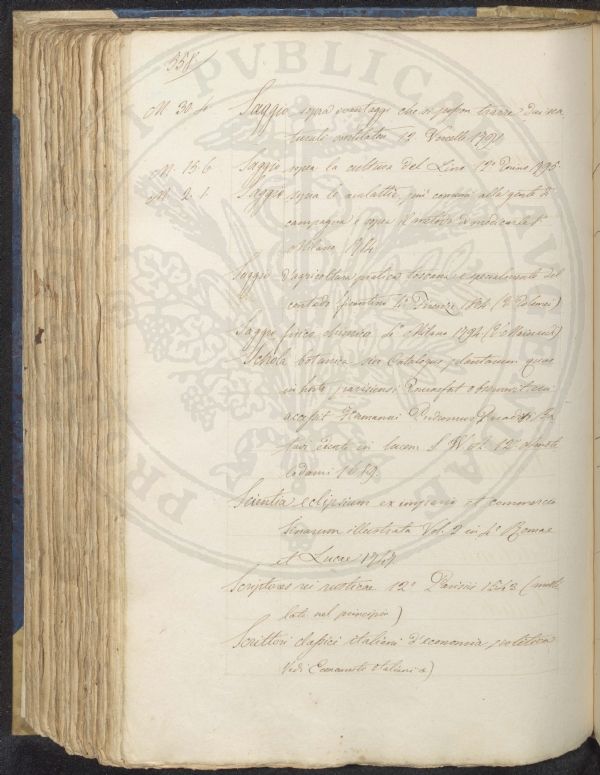 558
M 30 Saggio sopra i vantaggi che si posson trarre dai sea
tuenti ventilatori 12 Vercelli 1794
M. 15. 6 Saggio sopra la cultura del Lino 12° Torino 1795
M. 2. 1 Saggio sopra le malattie più comuni alla gente di
campagna e sopra il metodo di medicarle 8°
Milano 1784
Saggio d'agricoltura pratica toscana e specialmente del
contado fiorentino 4° Firenze 1804
Saggio fisico chimico 4° Milano 1794
Schola botanica sive Catalogus plantarum quas
in horto parisiensi
accessit Hermanni Prodromus Paradisi Ba
tavi in lucem 12° Amste
lodami 1689.
Scientia eclipsium ex imperio et commercio
Sinarum illustrata Vol. 2 in 4° Romae
et Lucae 1747
Scriptores rei rusticae 12° Parisiis 1543 (muti
lato nel principio)
Scrittori classici italiani d'economia politica
Vedi Economisti italiani)
PUBLICA
PRO